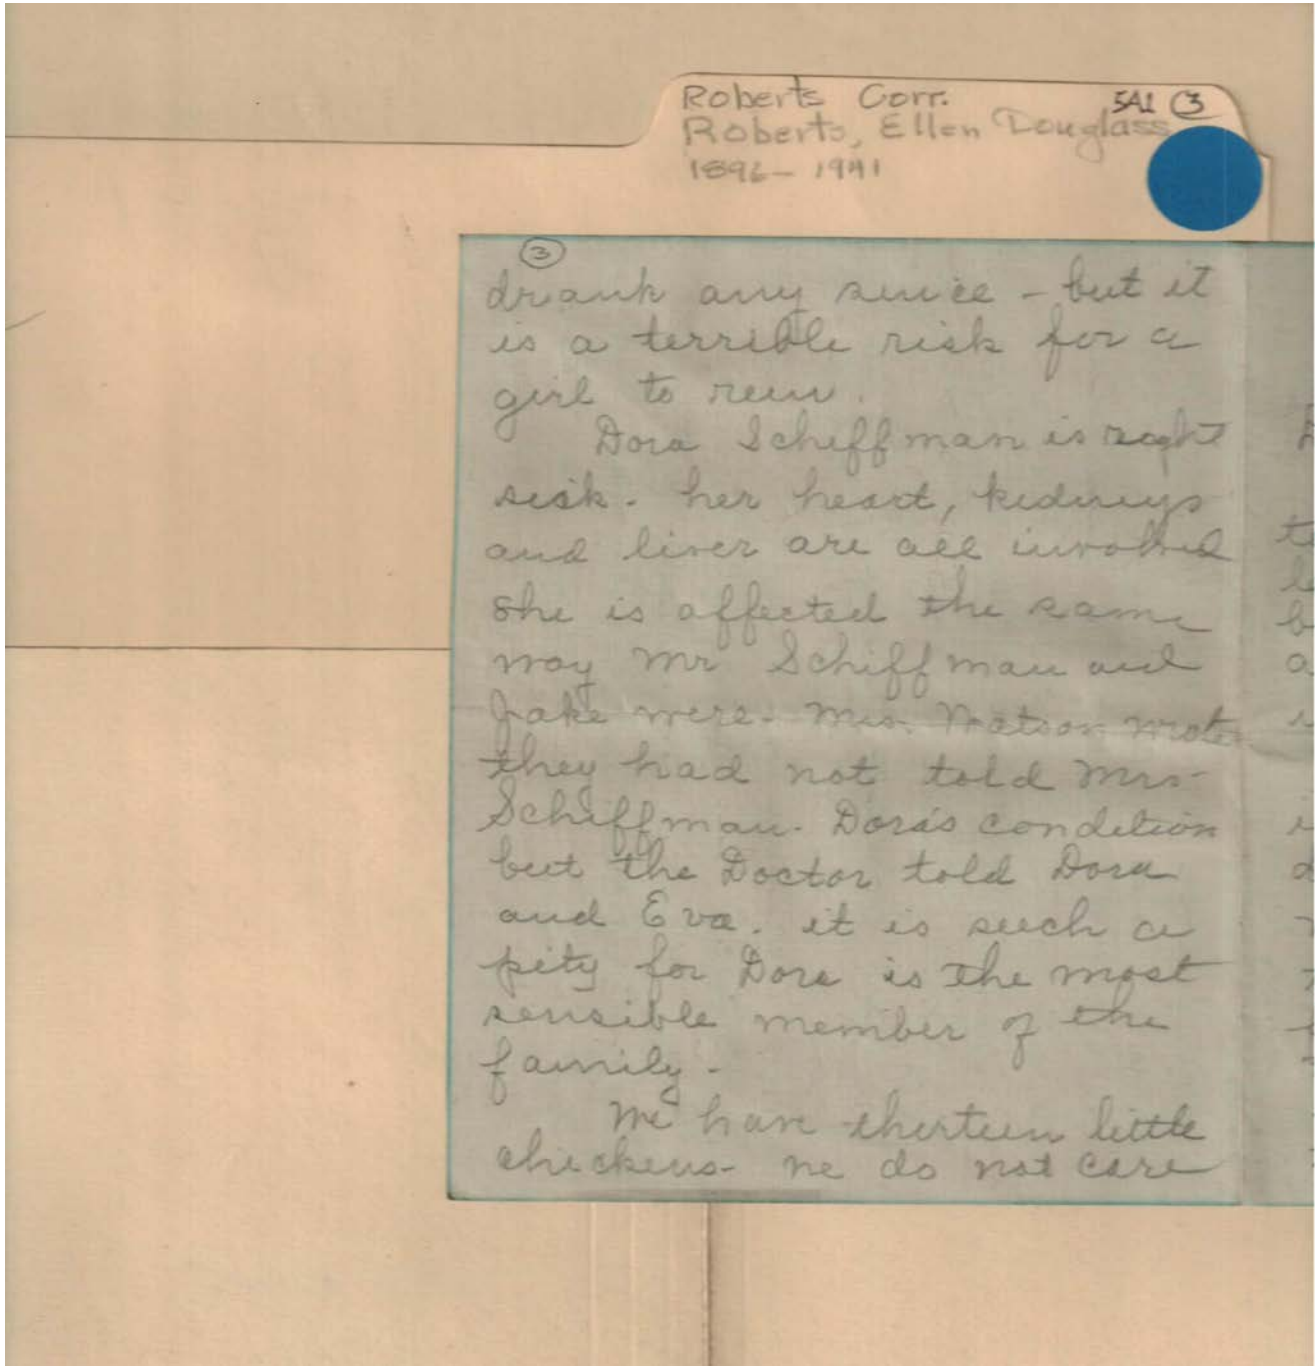 Roberts Corr. 5A1 (3)
Roberts, Ellen Douglass
1896- 1941
(3)
drank any since - but it
is a terrible risk for a
girl to run.
Dora Schiffman is right
sick. her heart, kidneys
and liver are all involved
She is affected the same
way Mr Schiffman and
Jake were. Mrs. Watson wrote
they had not told Mrs
Schiffman. Dora's condition
but the Doctor told Dora
and Eva. it is such a
pity for Dora is the most
sensible member of the
family -
We have thirteen little
chickens- we do not care